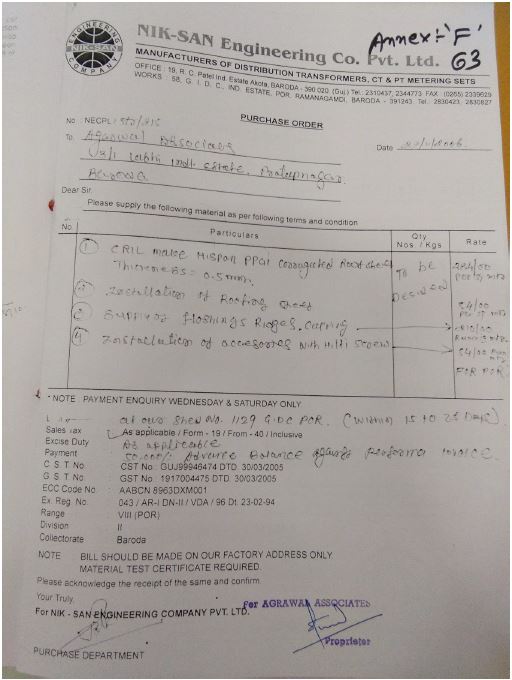 ENGINEERING
NIK-SAN
COMPANY
NIK-SAN Engineering Co. Pvt. Ltd.
Annex-'F'
63
MANUFACTURERS OF DISTRIBUTION TRANSFORMERS, CT & PT METERING SETS
OFFICE : 19, R. C. Patel Ind. Estate Akota, BARODA - 390 020 (Guj) Tel.: 2310437, 2344773 FAX (0265) 2339629
WORKS : 58, G. I. D. C., IND. ESTATE, POR, RAMANAGAMDI, BARODA - 391243. Tel.: 2830423, 2830827
PURCHASE ORDER
No. NECPL/
To, Agarwal Associates
Date
Estate,
Baroda
Dear Sir,
Please supply the following material as per following terms and condition
No. Particulars Qty. Nos. / Kgs. Rate
1 CRIL make PPGI Corrugated Roof sheet To be
Thickness = 0.5mm.
2 Installation of Roofing sheet
3 Supply of flashings Ridges, capping
4 Installation of accesories with Hilti screw
FOR POR
NOTE : PAYMENT ENQUIRY WEDNESDAY & SATURDAY ONLY.
at our shed No. 1129 GIDC POR. (Within 15 to 25 )
Sales Tax : As applicable / Form - 19 / From - 40 / Inclusive
Excise Duty As applicable
Payment 50.00% Advance Balance against Performa invoice.
C. S. T No CST No : GUJ99946474 DTD. 30/03/2005
G. S. T No GST No : 1917004475 DTD. 30/03/2005
ECC Code No AABCN 8963DXM001
Ex. Reg. No 043 / AR-I DN-II / VDA / 96 Dt. 23-02-94
Range VIII (POR)
Division II
Collectorate Baroda
NOTE BILL SHOULD BE MADE ON OUR FACTORY ADDRESS ONLY
MATERIAL TEST CERTIFICATE REQUIRED.
Please acknowledge the receipt of the same and confirm.
Your Truly,
For NIK - SAN ENGINEERING COMPANY PVT. LTD.
For AGRAWAL ASSOCIATES
Proprietor
PURCHASE DEPARTMENT